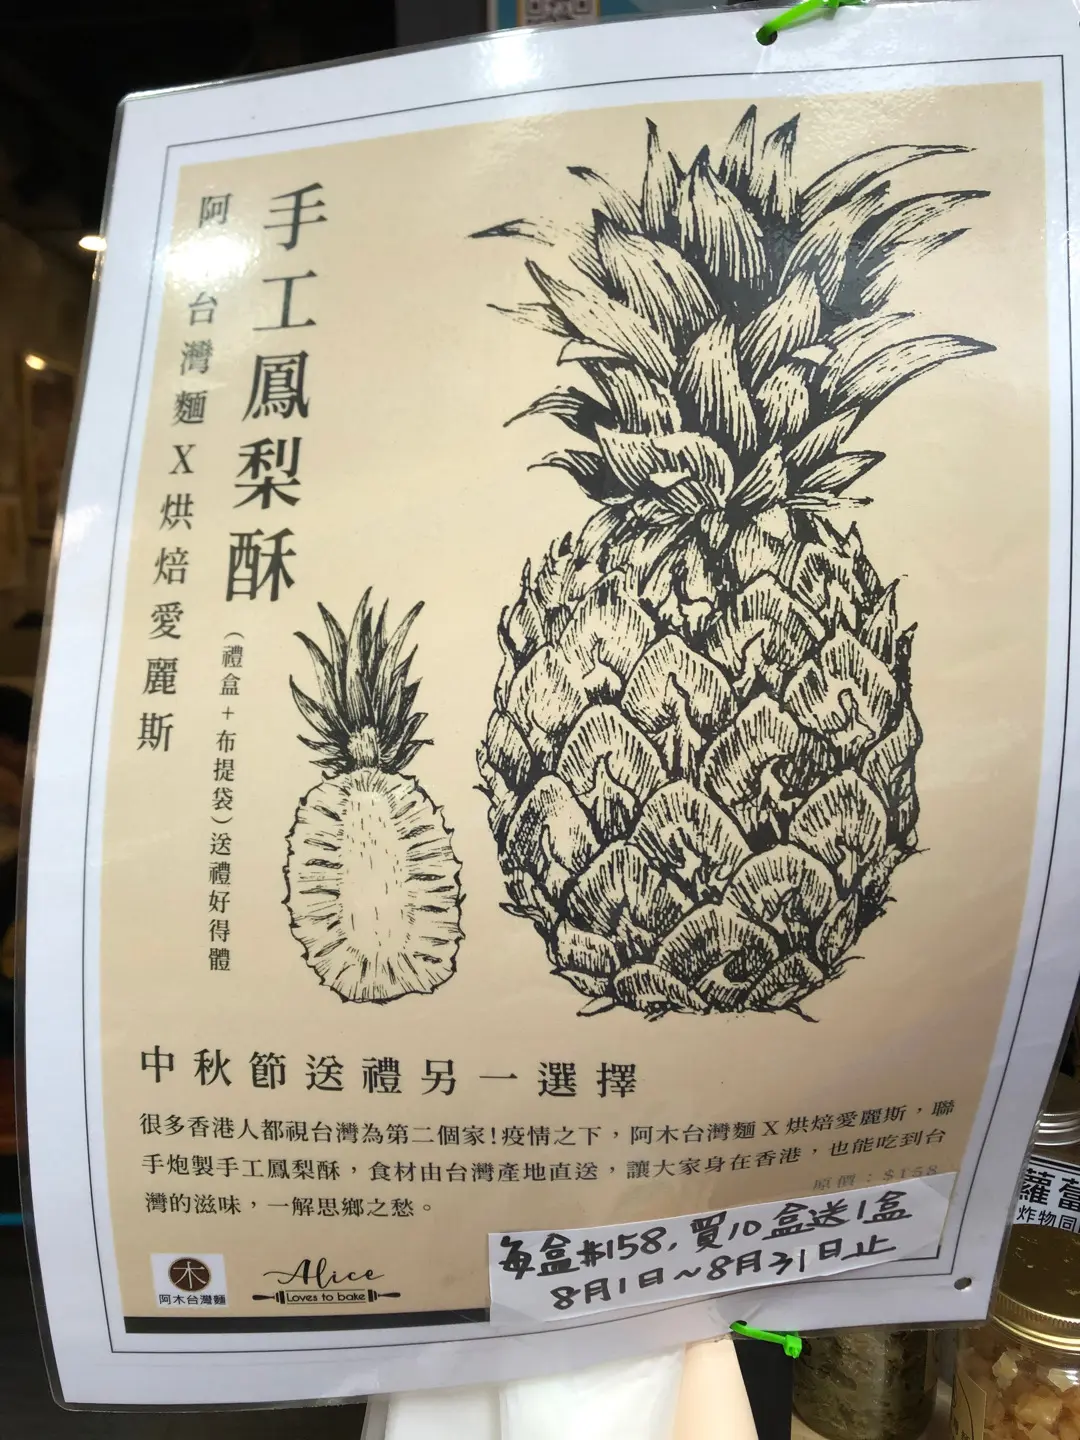 手工鳳梨酥
(禮盒+布提袋)送禮好得體
阿 台灣麵X烘焙愛麗斯
中秋節送禮另一選擇
很多香港人都視台灣為第二個家!疫情之下，阿木台灣麵X烘焙愛麗斯，聯
手炮製手工鳳梨酥，食材由台灣產地直送，讓大家身在香港，也能吃到台
灣的滋味，一解思鄉之愁。
原價：$158
每盒$158,買10盒送1盒
8月1日～8月31日止
木
阿木台灣麵
Alice
Loves to bake
蘿蔔
炸物同